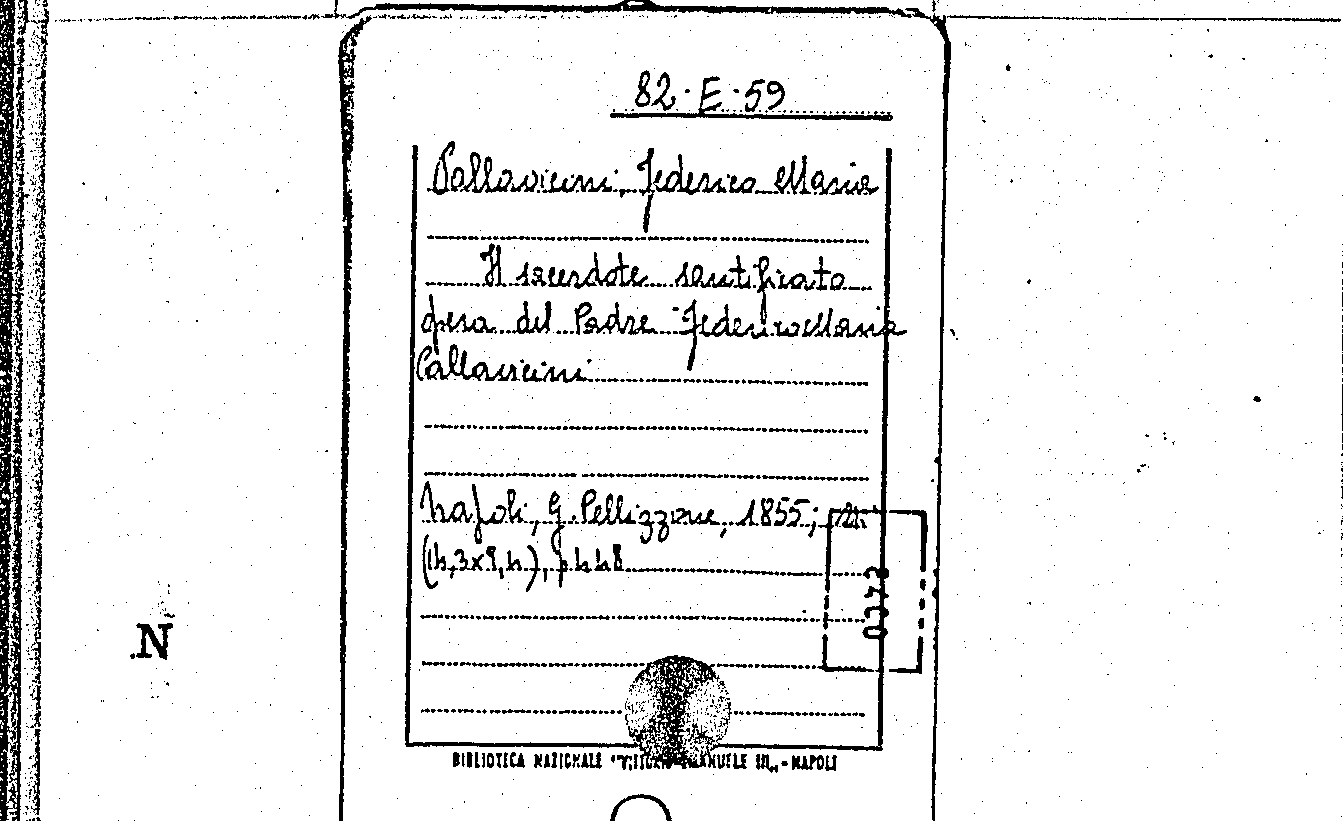 82·E·59
Pallavicini, Federico Maria
Il sacerdote santificato
opera del Padre Federico Maria
Pallavicini
Napoli, G. Pellizzone, 1855;
p 448
N
BIBLIOTECA NAZIONALE "VITTORIO EMANUELE III" - NAPOLI